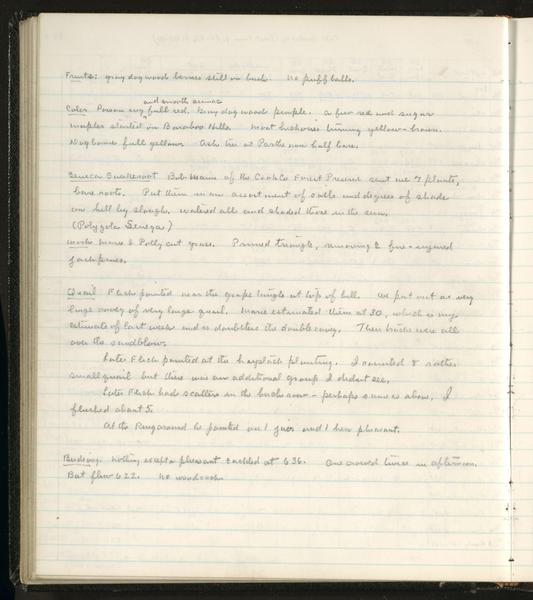 Fruits: gray dogwood berries still on bush. No puffballs.
and smooth sumac
Color Poison ivy full red. Gray dogwood purple. A few red and sugar
maples started in Baraboo Hills. Most hickories turning yellow-brown.
Dogbane full yellow. Ash tree at Parthe now half bare.
Seneca Snakeroot Bob Mann of the Cook Co Forest Preserve sent me 7 plants,
bare roots. Put them in an assortment of soils and degrees of shade
on hill by slough. Watered all and shaded those in the sun.
(Polygala Senega)
Work: Marie & Polly cut grass. Pruned triangle, removing 2 fire-injured
jackpines.
Quail Flick pointed near the grape tangle at top of hill. We put out a very
large covey of very large quail. Marie estimated them at 30, which is my
estimate of last week and is doubtless the double covey. Their tracks were all
over the sandblow.
Later Flick pointed at the haystack planting. I counted 8 rather
small quail but there was an additional group I didn't see.
Later Flick had scatters in the birch row - perhaps same as above. I
flushed about 5.
At the Ringaround he pointed on 1 and 1 hen pheasant.
Birdsong. Nothing except a pheasant cackled at 6:36. One crowed twice in afternoon.
Bat flew 6:22. No woodcock.